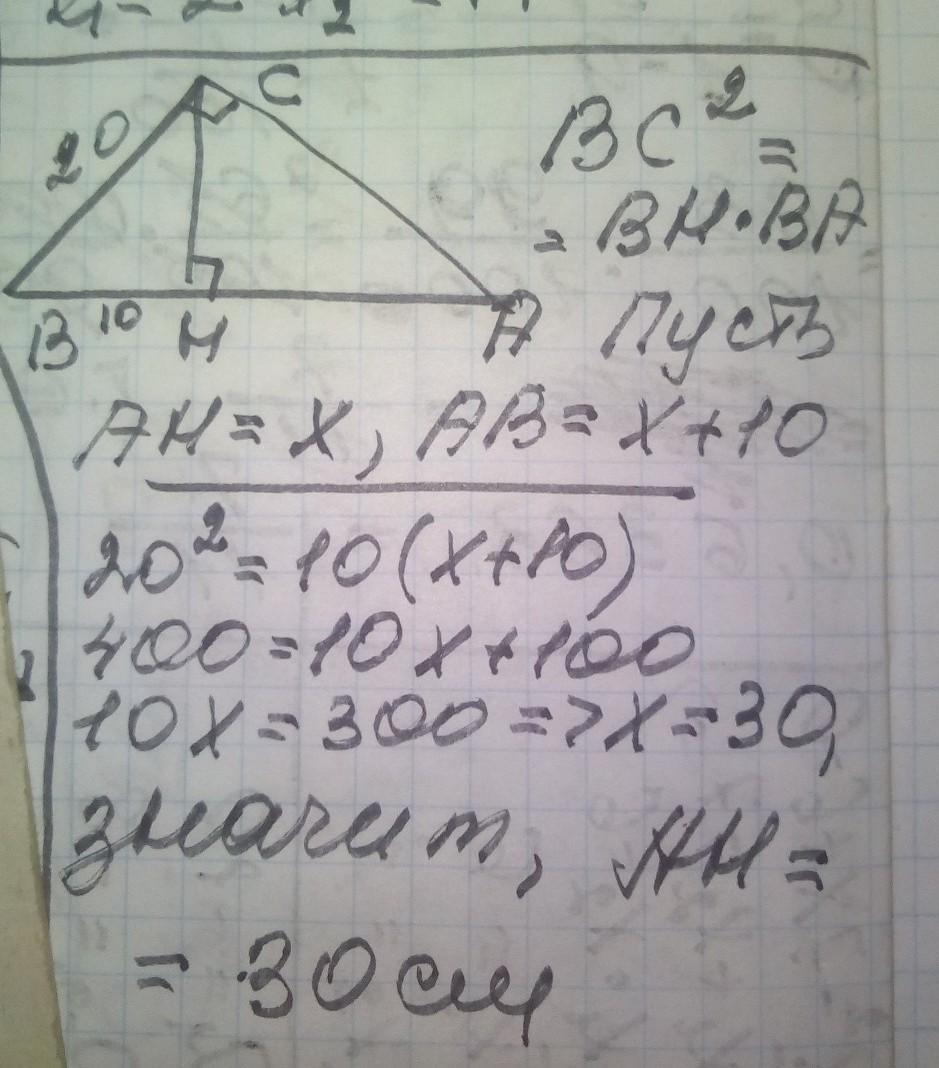 C
20
BC² =
= BH·BA
B 10 H A Пусть
AH = x, AB = x+10
20² = 10(x+10)
400 = 10x+100
10x = 300 => x = 30,
значит, AH =
= 30 см